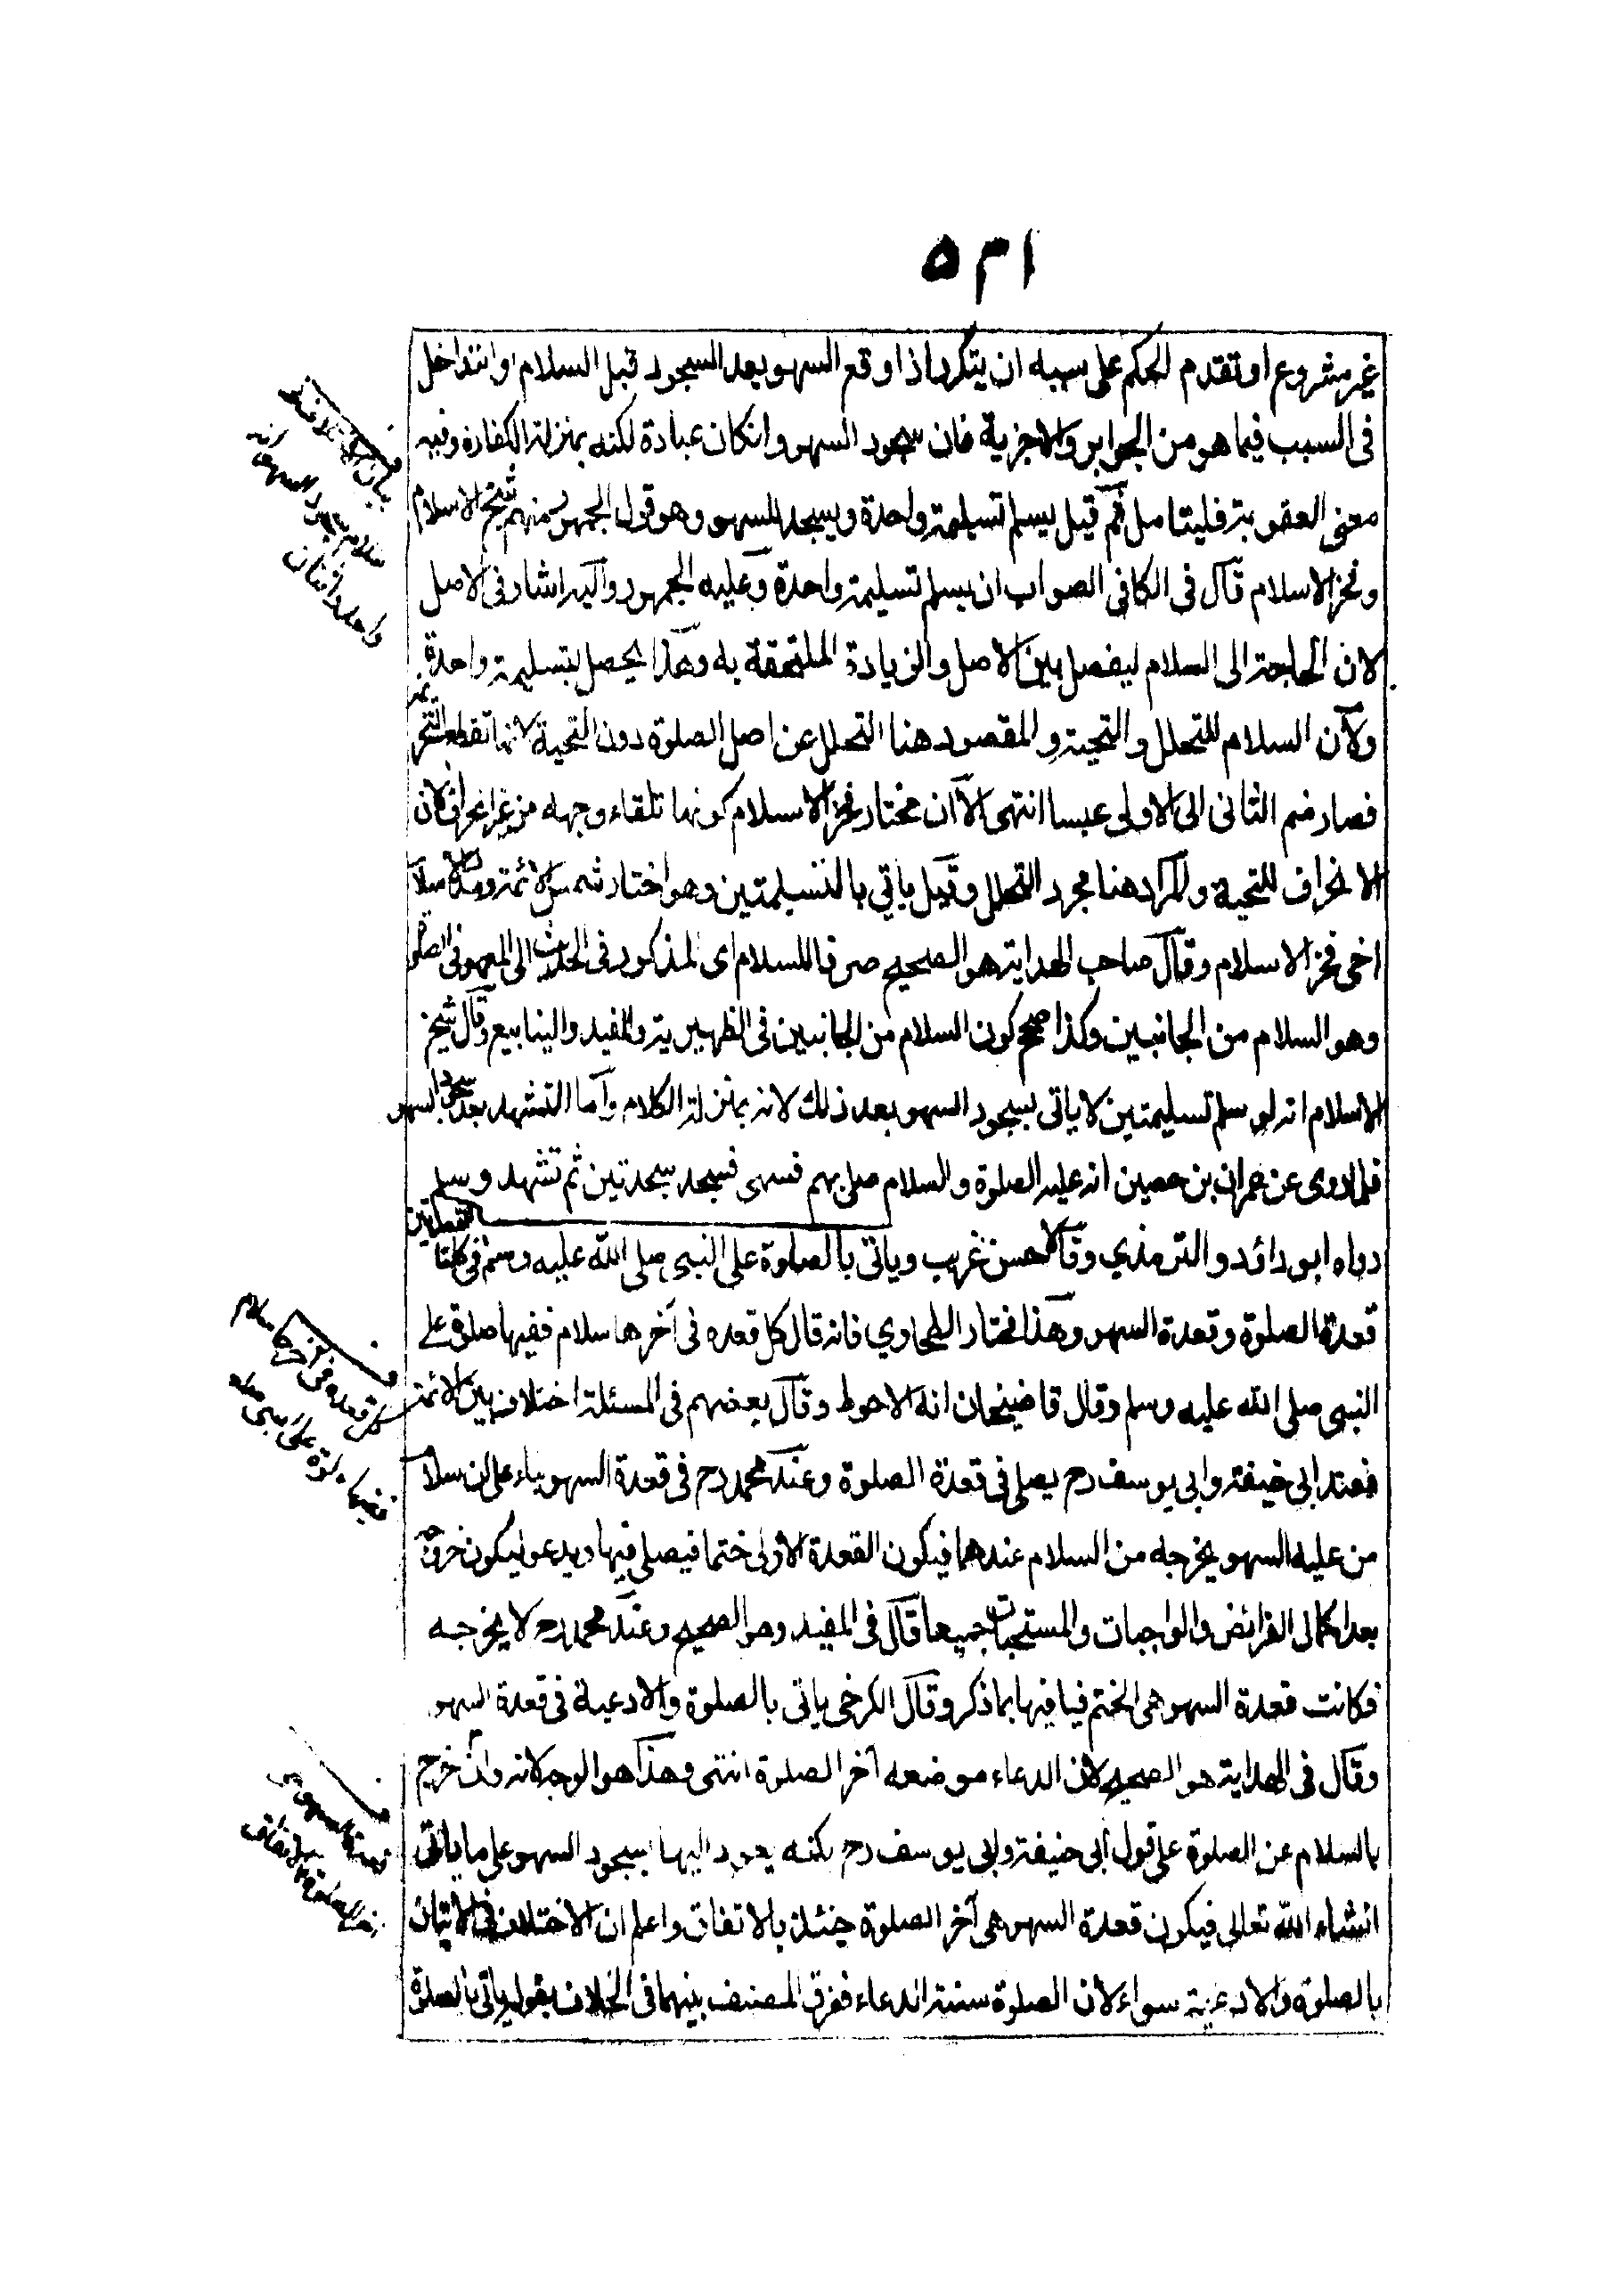 ٥٣١
غير مشروع او تقدم الحكم على سببه ان يتكرر اذا وقع السهو بعد السجود قبل السلام او التداخل
فى السبب فيما هو من الجوابر والاجزية فان سجود السهو وانكان عبادة لكنه بمنزلة الكفارة وفيه
معنى العقوبة فليتامل ثم قيل يسلم تسليمة واحدة ويسجد للسهو وهو قول الجمهور منهم شيخ الاسلام
وفخر الاسلام قال فى الكافى الصواب ان يسلم تسليمة واحدة وعليه الجمهور واليه اشار فى الاصل
لان الحاجة الى السلام ليفصل بين الاصل والزيادة الملتحقة به وهذا يحصل بتسليمة واحدة
ولان السلام للتحلل والتحية والمقصود هنا التحلل عن اصل الصلوة دون التحية لانها تقطع التحريمة
فصار ضم الثانى الى الاولى عبسا انتهى الا ان مختار فخر الاسلام كونها تلقاء وجهه من غير انحراف لان
الانحراف للتحية والمراد هنا مجرد التحلل وقيل ياتي بالتسليمتين وهو اختار شمس الائمة وصدر الاسلام
اخى فخر الاسلام وقال صاحب الهداية هو الصحيح صرفا للسلام اى المذكور فى الحديث الى المعهود فى الصلوة
وهو السلام من الجانبين وكذا صحح كون السلام من الجانبين فى الظهيرية والمفيد والينابيع وقال شيخ
الاسلام انه لو سلم تسليمتين لا ياتى بسجود السهو بعد ذلك لانه بمنزلة الكلام واما التشهد بعد سجود السهو
فلما روى عن عمران بن حصين انه عليه الصلوة والسلام صلى بهم فسهى فسجد سجدتين ثم تشهد وسلم
رواه ابو داؤد والترمذي وقال حسن غريب وياتى بالصلوة على النبي صلى الله عليه وسلم فى كلتا القعدتين
قعدة الصلوة وقعدة السهو وهذا مختار الطحاوي فانه قال كل قعدة فى آخرها سلام ففيها صلوة على
النبى صلى الله عليه وسلم وقال قاضيخان انه الاحوط وقال بعضهم فى المسئلة اختلاف بين الائمة
فعند ابى حنيفة وابى يوسف رح يصلى فى قعدة الصلوة وعند محمد رح فى قعدة السهو بناء على ان سلام
من عليه السهو يخرجه من السلام عندهما فيكون القعدة الاولى ختما فيصلى فيها ويدعو ليكون خروجه
بعد اكمال الفرائض والواجبات والمستحبات جميعا قال فى المفيد وهو الصحيح وعند محمد رح لا يخرجه
فكانت قعدة السهو هى الختم فياتى فيها بما ذكر وقال الكرخى ياتى بالصلوة والادعية فى قعدة السهو
وقال فى الهداية هو الصحيح لان الدعاء موضعه آخر الصلوة انتهى وهذا هو الوجه لانه وان خرج
بالسلام عن الصلوة على قول ابى حنيفة وابى يوسف رح لكنه يعود اليها بسجود السهو على ما ياتى
انشاء الله تعالى فيكون قعدة السهو هى آخر الصلوة حينئذ بالاتفاق واعلم ان الاختلاف فى الاتيان
بالصلوة والادعية سواء لان الصلوة سنة الدعاء ففرق المصنف بينهما فى الخلاف بقوله ياتى بالصلوة
بيان الاختلاف فى
سلام سجود السهو انه
واحد او اثنان
كل قعدة فى آخرها سلام
ففيها صلوة على النبى صلعم
قعدة السهو هى
آخر الصلوة بالاتفاق